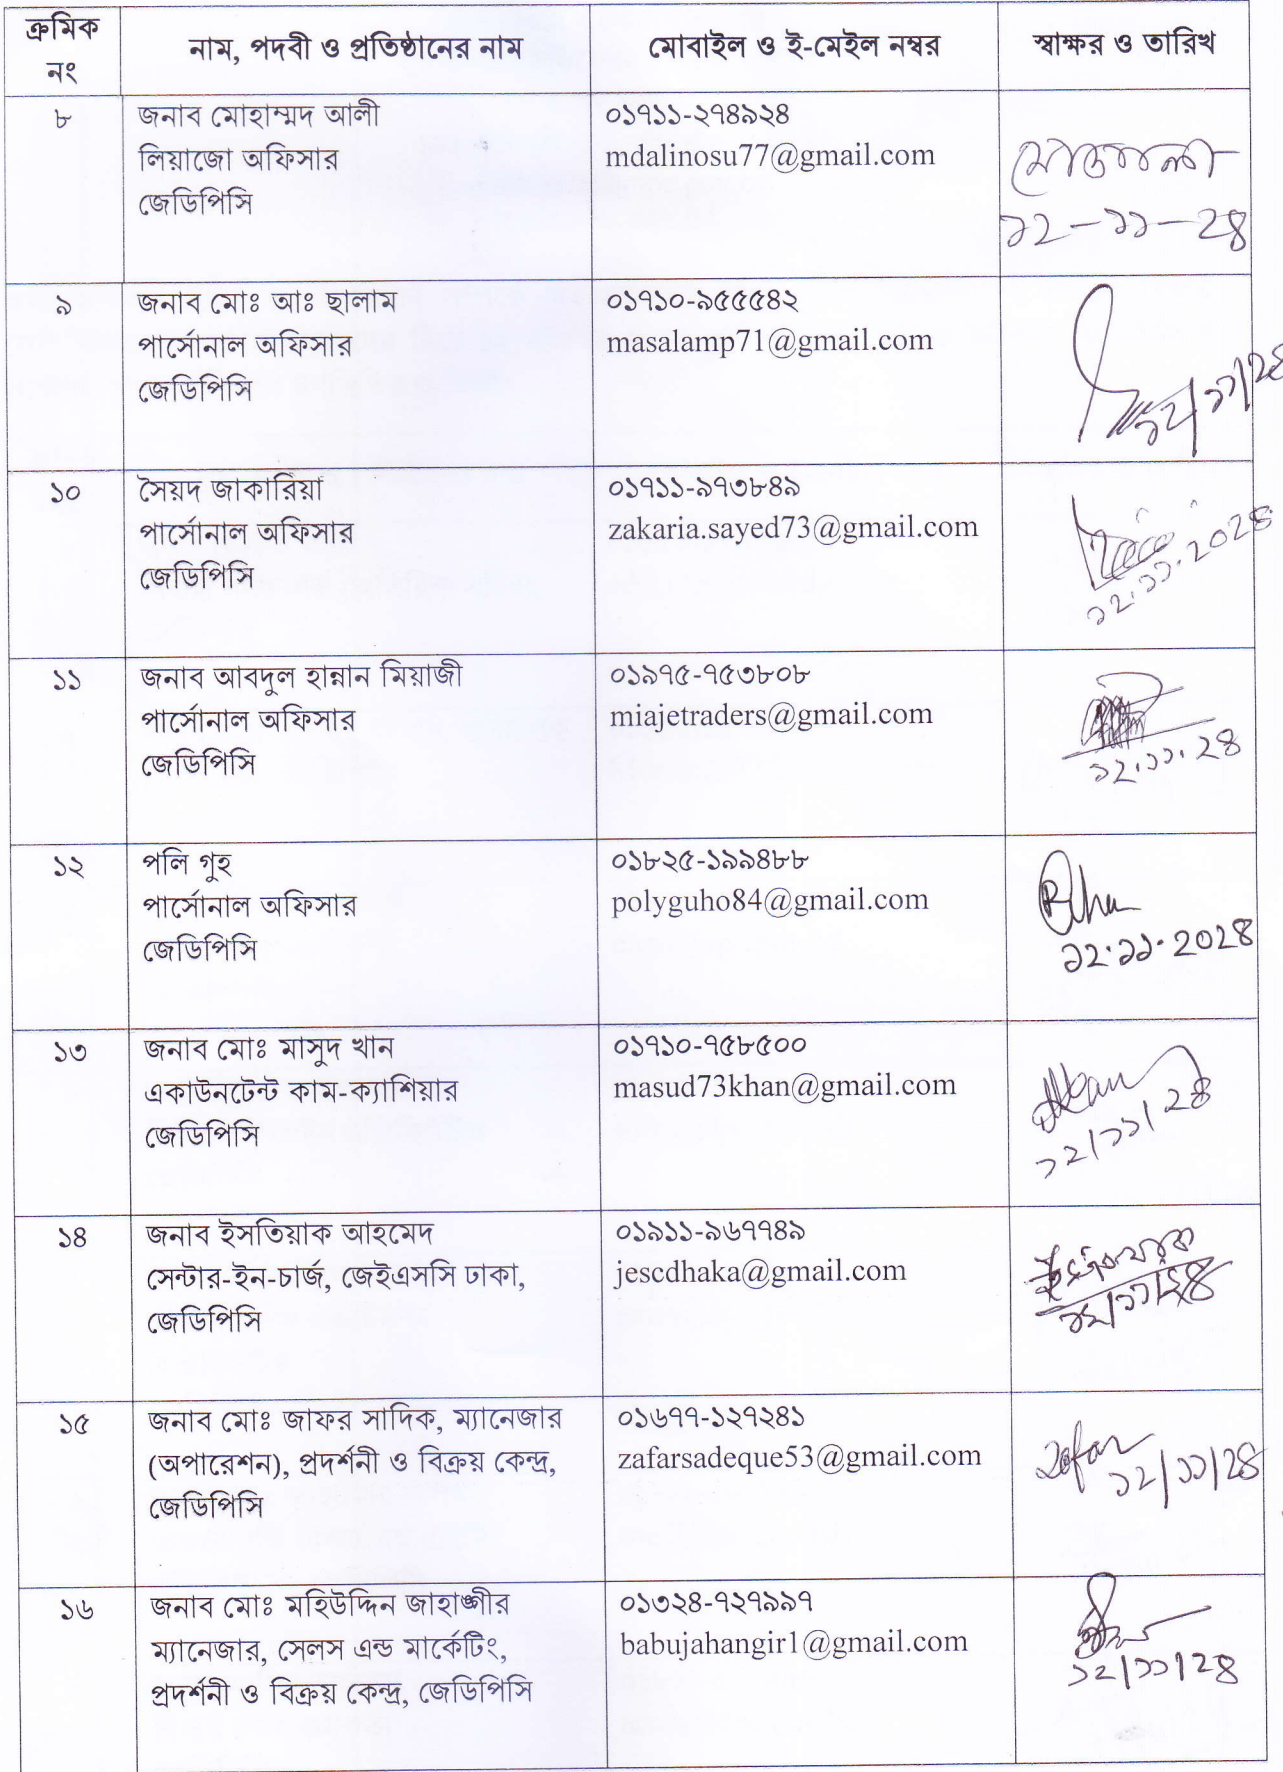 ক্রমিক
নং
নাম, পদবী ও প্রতিষ্ঠানের নাম
মোবাইল ও ই-মেইল নম্বর
স্বাক্ষর ও তারিখ
৮
জনাব মোহাম্মদ আলী
লিয়াজো অফিসার
জেডিপিসি
০১৭১১-২৭৪৯২৪
mdalinosu77@gmail.com
১২-১১-২৪
৯
জনাব মোঃ আঃ ছালাম
পার্সোনাল অফিসার
জেডিপিসি
০১৭১০-৯৫৫৫৪২
masalamp71@gmail.com
১২/১১/২৪
১০
সৈয়দ জাকারিয়া
পার্সোনাল অফিসার
জেডিপিসি
০১৭১১-৯৭৩৮৪৯
zakaria.sayed73@gmail.com
১২.১১.২০২৪
১১
জনাব আবদুল হান্নান মিয়াজী
পার্সোনাল অফিসার
জেডিপিসি
০১৯৭৫-৭৫৩৮০৮
miajetraders@gmail.com
১২.১১.২৪
১২
পলি গুহ
পার্সোনাল অফিসার
জেডিপিসি
০১৮২৫-১৯৯৪৮৮
polyguho84@gmail.com
১২.১১.২০২৪
১৩
জনাব মোঃ মাসুদ খান
একাউনটেন্ট কাম-ক্যাশিয়ার
জেডিপিসি
০১৭১০-৭৫৮৫০০
masud73khan@gmail.com
১২/১১/২৪
১৪
জনাব ইসতিয়াক আহমেদ
সেন্টার-ইন-চার্জ, জেইএসসি ঢাকা,
জেডিপিসি
০১৯১১-৯৬৭৭৪৯
jescdhaka@gmail.com
১২/১১/২৪
১৫
জনাব মোঃ জাফর সাদিক, ম্যানেজার
(অপারেশন), প্রদর্শনী ও বিক্রয় কেন্দ্র,
জেডিপিসি
০১৬৭৭-১২৭২৪১
zafarsadeque53@gmail.com
Zafar
১২/১১/২৪
১৬
জনাব মোঃ মহিউদ্দিন জাহাঙ্গীর
ম্যানেজার, সেলস এন্ড মার্কেটিং,
প্রদর্শনী ও বিক্রয় কেন্দ্র, জেডিপিসি
০১৩২৪-৭২৭৯৯৭
babujahangir1@gmail.com
১২/১১/২৪